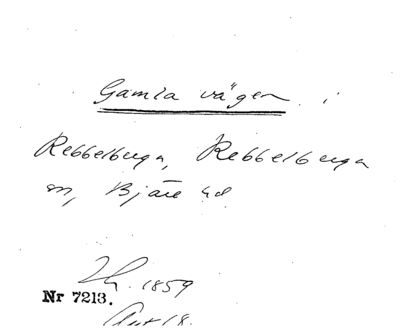 Gamla vägen i
Rebbelberga, Rebbelberga
sn, Bjäre hd
Lh. 1859
Nr 7213.